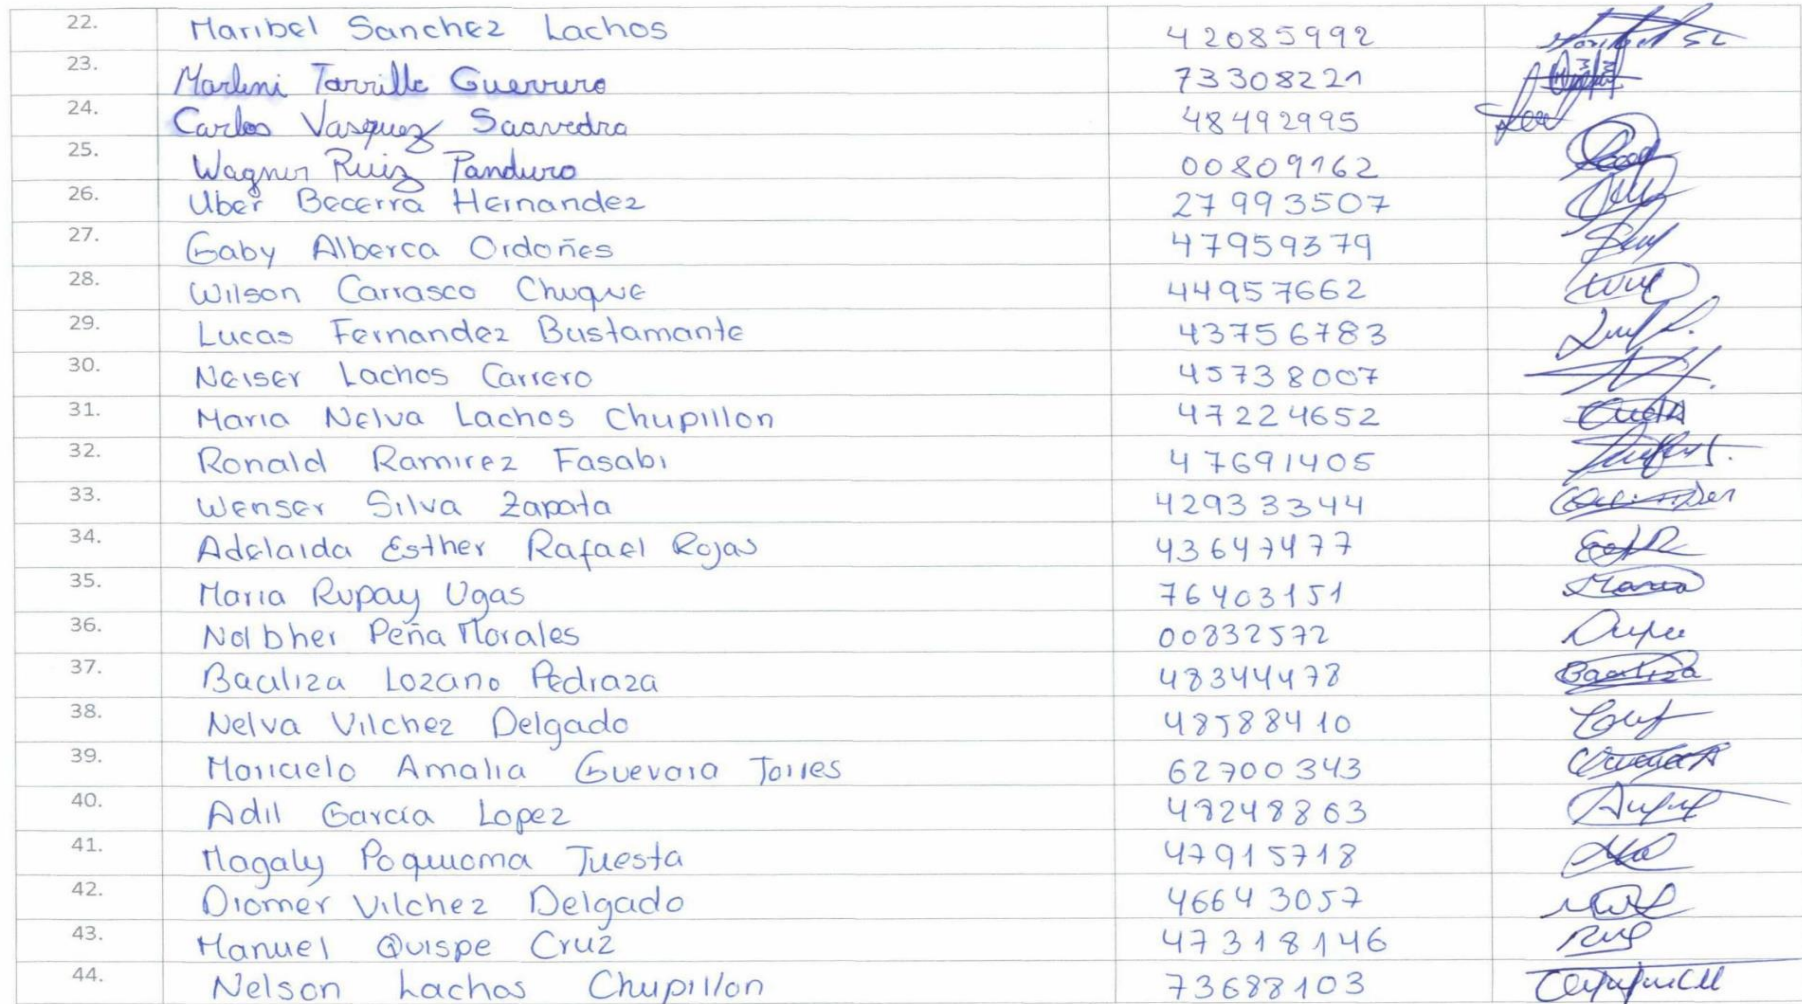 22. Maribel Sanchez Lachos 42085992
23. Marleni Tarrillo Guerrero 73308221
24. Carlos Vasquez Saavedra 48492995
25. Wagner Ruiz Panduro 00809162
26. Uber Becerra Hernandez 27993507
27. Gaby Alberca Ordoñes 47959379
28. Wilson Carrasco Chuque 44957662
29. Lucas Fernandez Bustamante 43756783
30. Neiser Lachos Carrero 45738007
31. Maria Nelva Lachos Chupillon 47224652
32. Ronald Ramirez Fasabi 47691405
33. Wenser Silva Zapata 42933344
34. Adelaida Esther Rafael Rojas 43647477
35. Maria Rupay Ugas 76403151 Maria
36. Nolbher Peña Morales 00832572
37. Bacaliza Lozano Pedraza 48344478
38. Nelva Vilchez Delgado 48588410
39. Maricielo Amalia Guevara Torres 62700343
40. Adil García Lopez 48248863
41. Magaly Poquioma Tuesta 47915718
42. Diomer Vilchez Delgado 46643057
43. Manuel Quispe Cruz 47318146
44. Nelson Lachos Chupillon 73688103